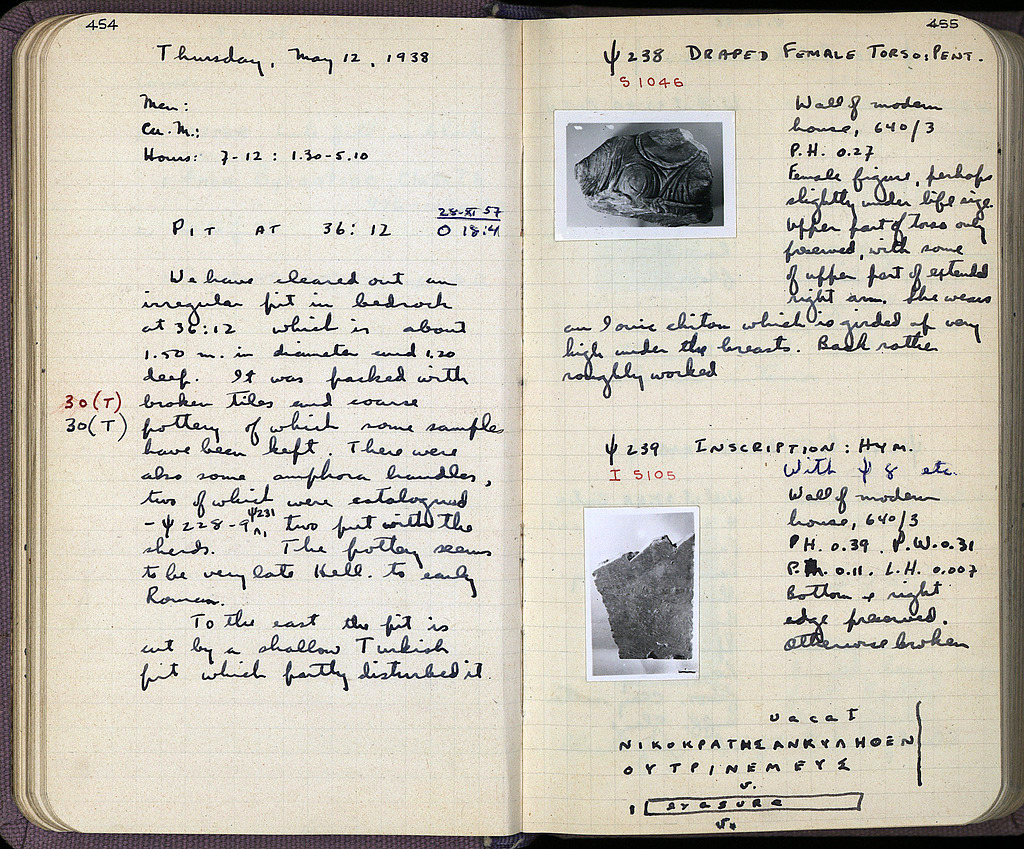 454
Thursday, May 12, 1938
Men:
Cu. M.:
Hours: 7-12 : 1.30-5.10
28-XI 57
PIT AT 36:12 O 18:4
We have cleared out an
irregular pit in bedrock
at 36:12 which is about
1.50 m. in diameter and 1.20
deep. It was packed with
30(T) broken tiles and coarse
30(T) pottery of which some samples
have been kept. There were
also some amphora handles,
two of which were catalogued
- ψ 228-9, ψ231 two put with the
sherds. The pottery seems
to be very late Hell. to early
Roman.
To the east the pit is
cut by a shallow Turkish
pit which partly disturbed it.
455
ψ 238 DRAPED FEMALE TORSO: PENT.
S 1046
Wall of modern
house, 640/3
P.H. 0.27
Female figure, perhaps
slightly under life size.
Upper part of torso only
preserved, with some
of upper part of extended
right arm. She wears
an Ionic chiton which is girded up very
high under the breasts. Back rather
roughly worked
ψ 239 INSCRIPTION: HYM.
I 5105
With ψ 8 etc.
Wall of modern
house, 640/3
PH. 0.39. P.W. 0.31
P. 0.11. L.H. 0.007
Bottom & right
edge preserved.
Otherwise broken
vacat
ΝΙΚΟΚΡΑΤΗΣΑΝΚΥΛΗΘΕΝ
ΟΥΤΡΙΝΕΜΕΥΣ
v.
ι erasure
v.